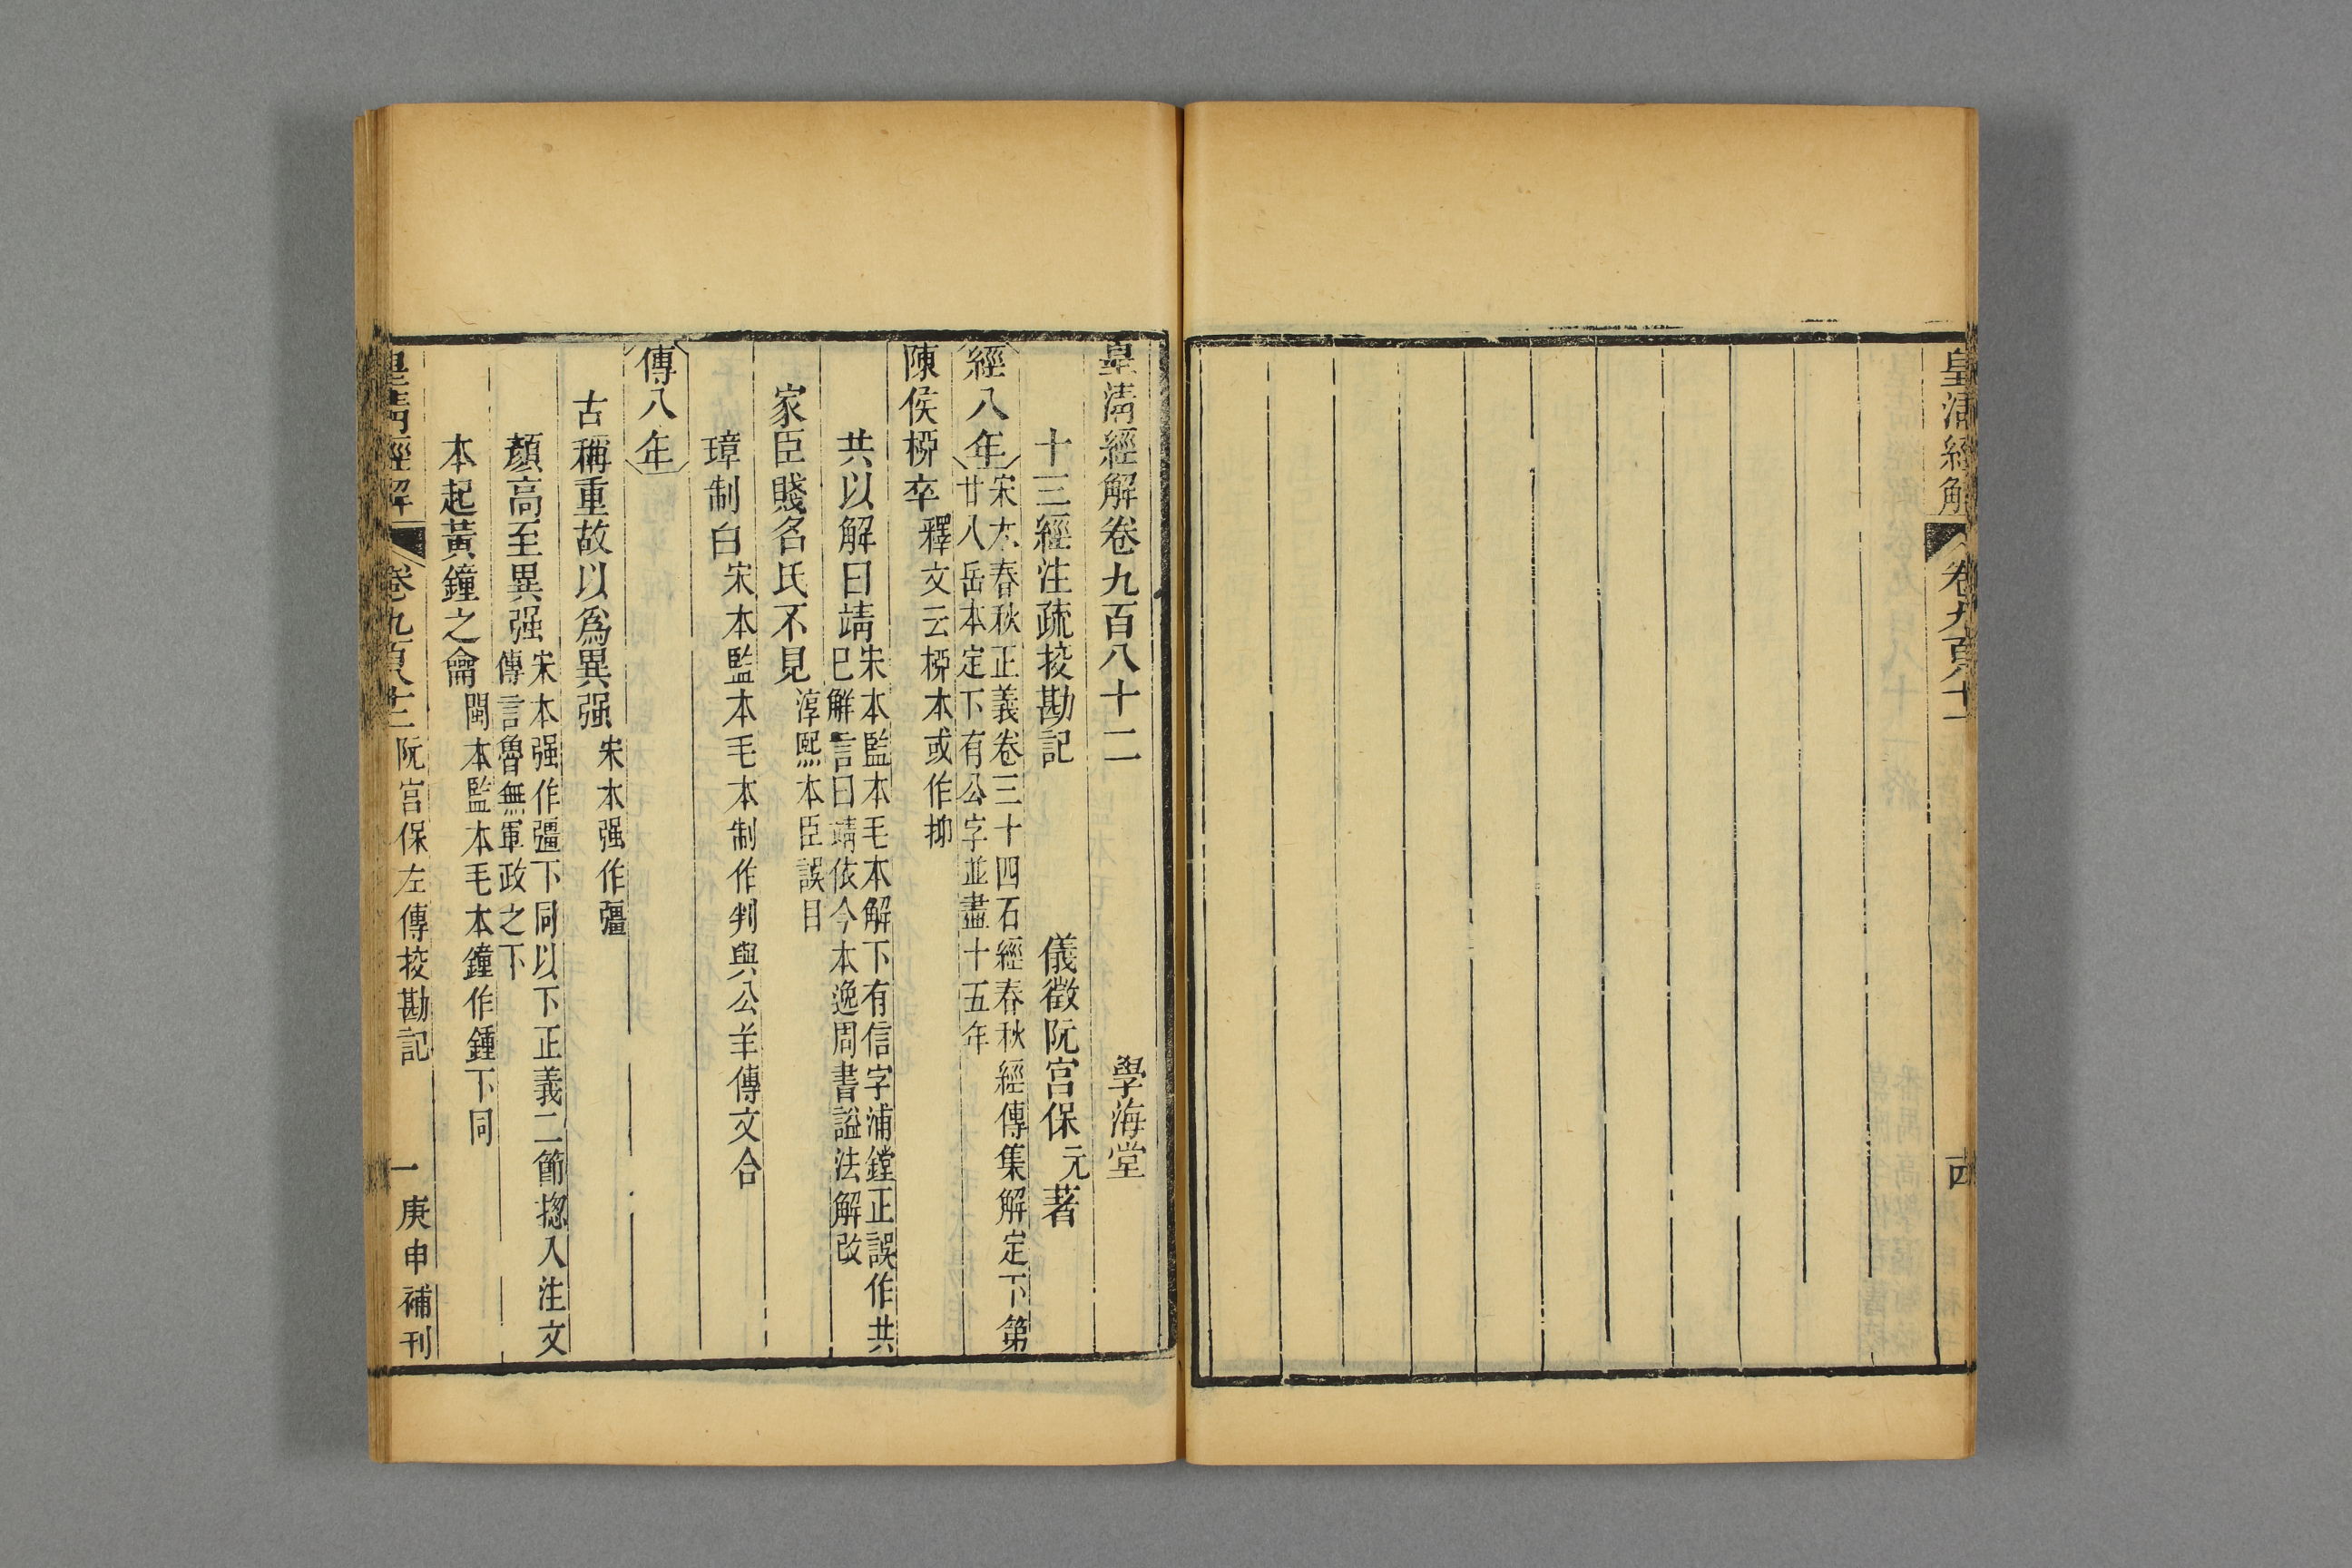 皇清經解
卷九百八十一
皇清經解卷九百八十二
學海堂
十三經注疏挍勘記
儀徵阮宮保元著
經八年
宋本春秋正義卷三十四石經春秋經傳集解定下第
廿八岳本定下有公字並盡十五年
陳侯桺卒
釋文云桺本或作抑
共以解曰靖
宋本監本毛本解下有信字浦鏜正誤作共
巳解言曰靖依今本逸周書謚法解改
家臣賤名氏不見
淳熙本臣誤目
璋制白
宋本監本毛本制作判與公羊傳文合
傳八年
古稱重故以爲異强
宋本强作彊
顏高至異强
宋本强作彊下同以下正義二節揔入注文
傳言魯無軍政之下
本起黃鐘之龠
閩本監本毛本鐘作鍾下同
皇清經解
卷九百八十二
阮宮保左傳挍勘記
一
庚申補刊